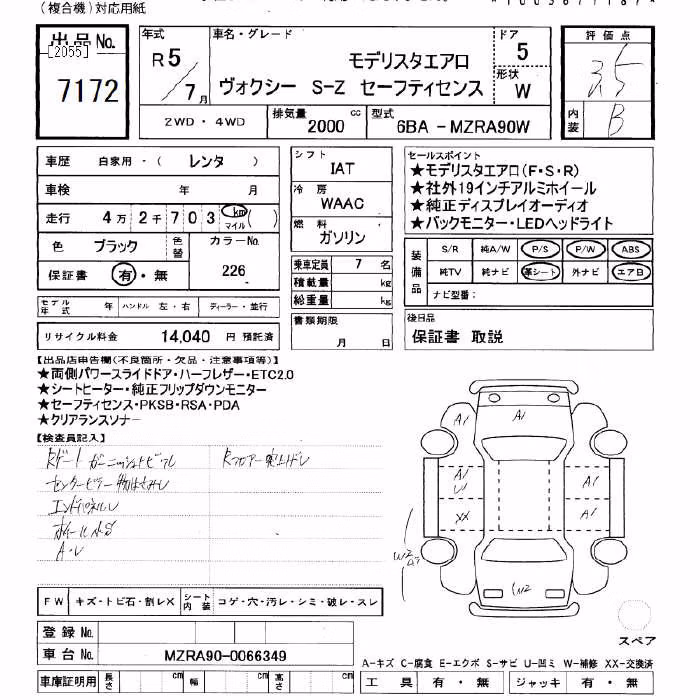 (複合機)対応用紙
出品No.
[2055]
7172
年式
R5/7月
車名・グレード
モデリスタエアロ
ヴォクシー S-Z セーフティセンス
ドア
5
形状
W
評価点
3.5
内装
B
2WD・4WD
排気量
2000 cc
型式
6BA-MZRA90W
車歴 自家用・( レンタ )
車検 年 月
走行 4万2千703 km マイル ( )
色 ブラック
色替
カラーNo.
226
保証書 有・無
モデル年式 年 ハンドル 左・右 ディーラー・並行
リサイクル料金 14,040 円 預託済
シフト
IAT
冷房
WAAC
燃料
ガソリン
乗車定員 7 名
積載量 kg
総重量 kg
書類期限
月 日
セールスポイント
★モデリスタエアロ(F・S・R)
★社外19インチアルミホイール
★純正ディスプレイオーディオ
★バックモニター・LEDヘッドライト
装備品
S/R 純A/W P/S P/W ABS
純TV 純ナビ 革シート 外ナビ エアB
ナビ型番:
後日品
保証書 取説
【出品店申告欄(不良箇所・欠品・注意事項等)】
★両側パワースライドドア・ハーフレザー・ETC2.0
★シートヒーター・純正フリップダウンモニター
★セーフティセンス・PKSB・RSA・PDA
★クリアランスソナー
【検査員記入】
Rゲート ガーニッシュトビフレ
Rフロアー突上ゲレ
エンドパネルレ
ホイールAS
A・レ
A1
A1
A1
A1
A1
U1
XX
W2
W2
FW キズ・トビ石・割レX
シート内装 コゲ・穴・汚レ・シミ・破レ・スレ
スペア
登録No.
車台No. MZRA90-0066349
車庫証明用 長さ cm 幅 cm 高さ cm
A-キズ C-腐食 E-エクボ S-サビ U-凹ミ W-補修 XX-交換済
工具 有・無 ジャッキ 有・無